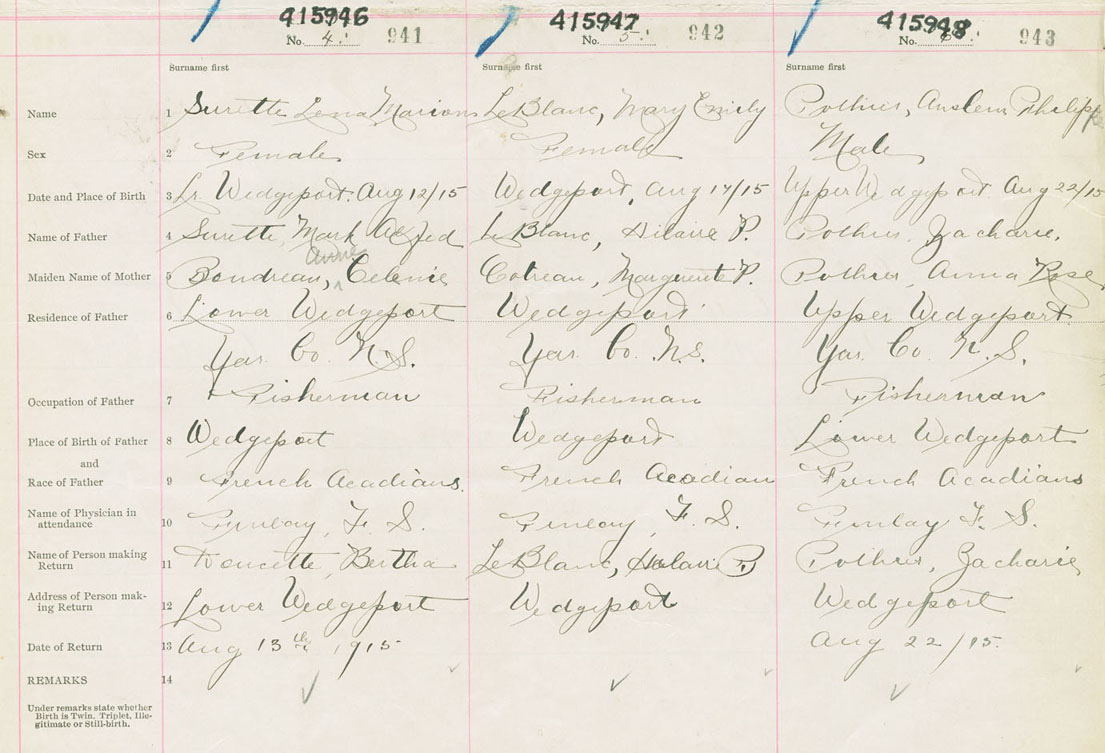 415946 415947 415948
No. 4. 941 No. 5. 942 No. 6. 943
Surname first Surname first Surname first
Name 1 Surette Lena Marion LeBlanc, Mary Emily Pothier, Anslem Philipp
Sex 2 Female Female Male
Date and Place of Birth 3 Lr. Wedgeport. Aug 12/15 Wedgeport, Aug 17/15 Upper Wedgeport Aug 22/15
Name of Father 4 Surette Mark LeBlanc, Hilaire P. Pothier, Zacharie,
Annie
Maiden Name of Mother 5 Boudreau, Celenie Cotreau, Marguerite P. Pothier, Anna Rose
Residence of Father 6 Lower Wedgeport Wedgeport Upper Wedgeport.
Yar. Co. N.S. Yar. Co. N.S. Yar. Co. N.S.
Occupation of Father 7 Fisherman Fisherman Fisherman
Place of Birth of Father 8 Wedgeport Wedgeport Lower Wedgeport
and
Race of Father 9 French Acadians. French Acadian French Acadians
Name of Physician in
attendance 10 Finlay, F. S. Finlay, F. S. Finlay F. S.
Name of Person making
Return 11 Doucette, Bertha LeBlanc, Hilaire P Pothier, Zacharie
Address of Person mak-
ing Return 12 Lower Wedgeport Wedgeport Wedgeport
Date of Return 13 Aug 13th, 1915 Aug 22/15.
REMARKS 14
Under remarks state whether
Birth is Twin, Triplet, Ille-
gitimate or Still-birth.